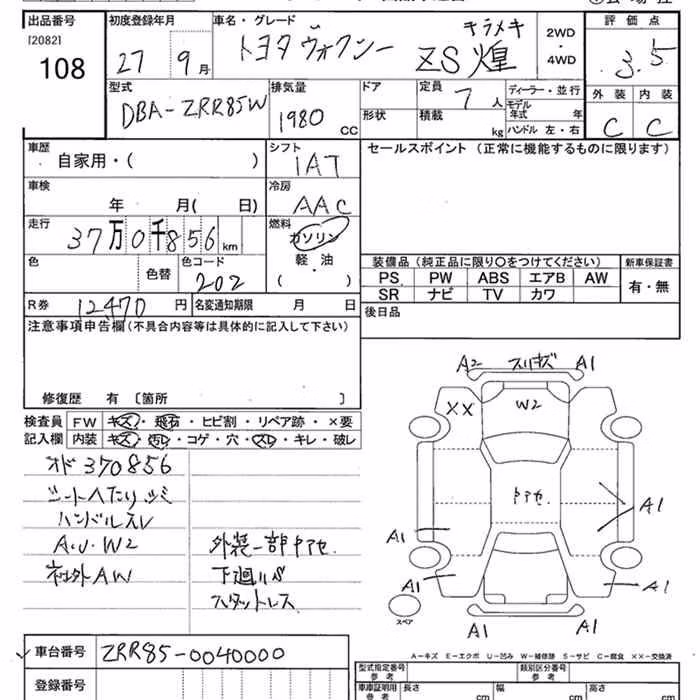 出品番号
[2082]
108
初度登録年月
27 9月
車名・グレード
トヨタ ヴォクシー
キラメキ
ZS 煌
2WD
・
4WD
評価点
3.5
外装 内装
C C
型式
DBA-ZRR85W
排気量
1980 CC
ドア
形状
定員
7人
積載
kg
ディーラー・並行
モデル年式 年
ハンドル 左・右
車歴
自家用・( )
シフト
IAT
セールスポイント (正常に機能するものに限ります)
車検
年 月( 日)
冷房
AAC
走行
37万0千856km
燃料
ガソリン
軽・油
( )
色
色替
色コード
202
装備品 (純正品に限り〇をつけてください)
新車保証書
PS PW ABS エアB AW
SR ナビ TV カワ
有・無
R券 12,470円
名変通知期限 月 日
後日品
注意事項申告欄(不具合内容等は具体的に記入して下さい)
修復歴 有 〔箇所 〕
検査員記入欄
FW キズ・飛石・ヒビ割・リペア跡・×要
内装 キズ・汚レ・コゲ・穴・スレ・キレ・破レ
オド370856
シートヘたリ シミ
ハンドルスレ
A.U・W2
社外AW
外装一部ヤケ
下廻リサビ
スタットレス
A2 スリキズ A1
XX
W2
ヤケ
A1
A1
A1
A1
A1 A1
スペア
A-キズ E-エクボ U-凹み W-補修跡 S-サビ C-腐食 ××-交換済
車台番号 ZRR85-0040000
登録番号
型式指定番号
参考
類別区分番号
参考
車庫証明用
参考
長さ cm
幅 cm
高さ cm